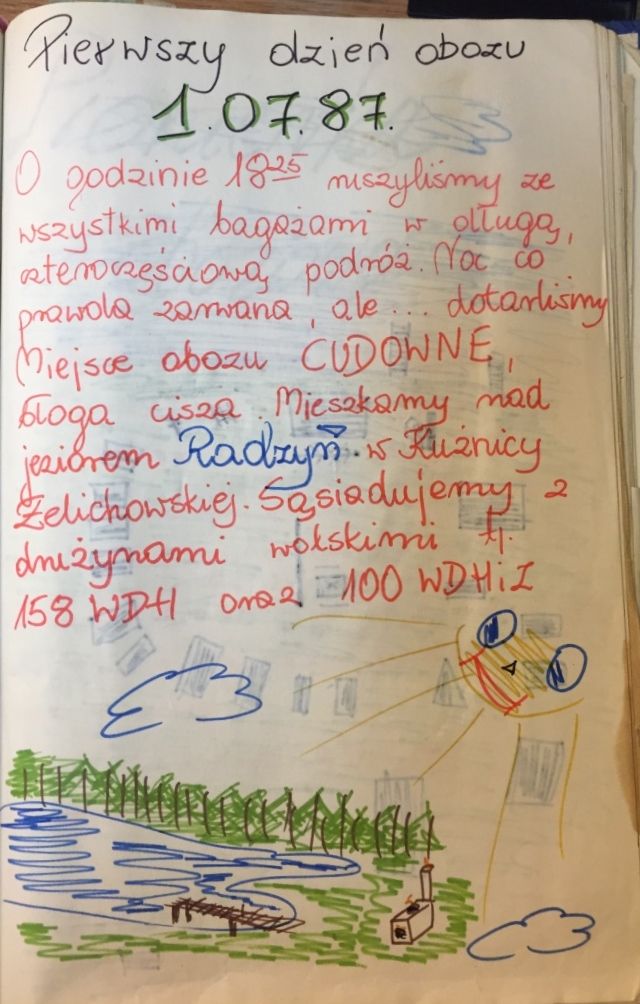 Pierwszy dzień obozu
1.07.87.
O godzinie 18²⁵ ruszyliśmy ze
wszystkimi bagażami w długą,
czteroczęściową podróż. Noc co
prawda zarwana, ale... dotarliśmy
Miejsce obozu CUDOWNE,
błoga cisza. Mieszkamy nad
jeziorem Radzyń w Kuźnicy
Żelichowskiej. Sąsiadujemy z
drużynami wolskimi tj.
158 WDH oraz 100 WDHiZ